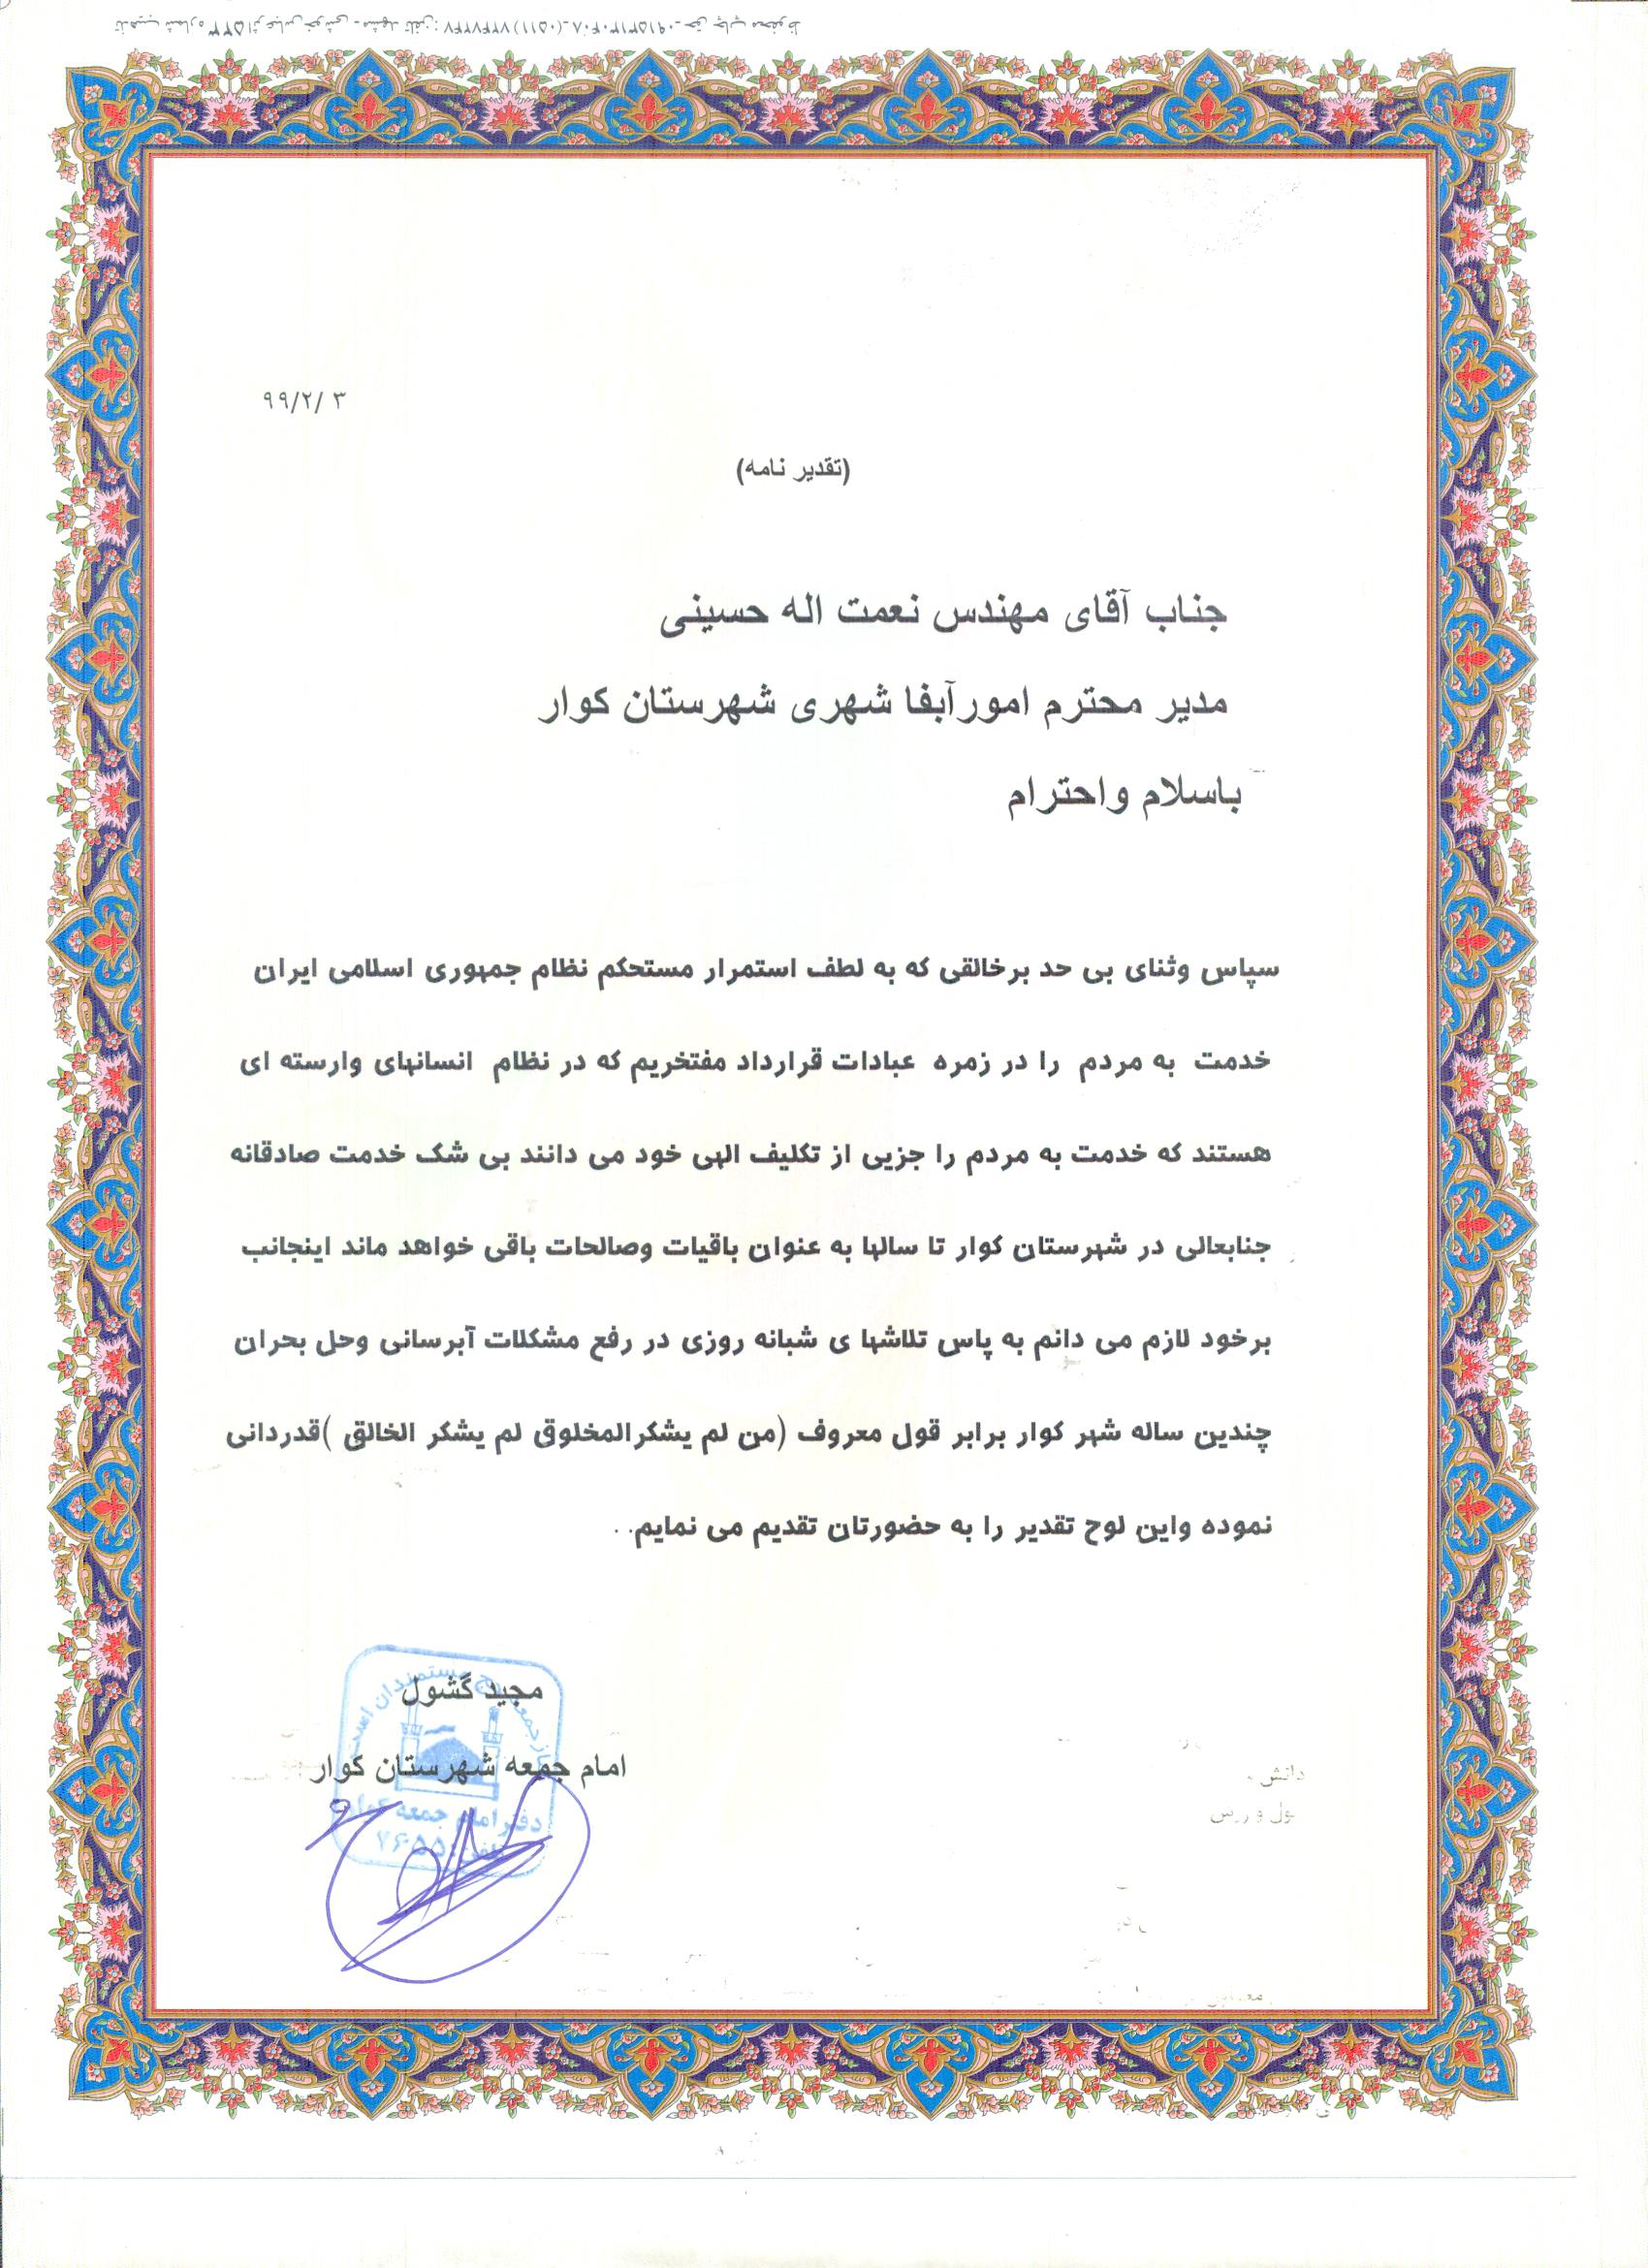 ۹۹/۲/ ۳
(تقدیر نامه)
جناب آقای مهندس نعمت اله حسینی
مدیر محترم امورآبفا شهری شهرستان کوار
باسلام واحترام
سپاس وثنای بی حد برخالقی که به لطف استمرار مستحکم نظام جمهوری اسلامی ایران
خدمت به مردم را در زمره عبادات قرارداد مفتخریم که در نظام انسانهای وارسته ای
هستند که خدمت به مردم را جزیی از تکلیف الهی خود می دانند بی شک خدمت صادقانه
جنابعالی در شهرستان کوار تا سالها به عنوان باقیات وصالحات باقی خواهد ماند اینجانب
برخود لازم می دانم به پاس تلاشها ی شبانه روزی در رفع مشکلات آبرسانی وحل بحران
چندین ساله شهر کوار برابر قول معروف (من لم یشکرالمخلوق لم یشکر الخالق )قدردانی
نموده واین لوح تقدیر را به حضورتان تقدیم می نمایم. .
مجید گشول
امام جمعه شهرستان کوار
دفتر امام جمعه کوار